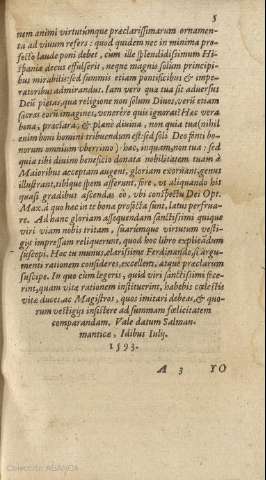 5
nem animi virtutúmque præclarissimarum ornamen-
ta ad viuum refers: quod quidem nec in minima pro-
fecto laude poni debet, cum ille splendidissimum Hi-
spaniæ decus effulserit, neque magnis solùm principi-
bus mirabilis: sed summis etiam pontificibus & impe-
ratoribus admirandus. Iam verò qua tua sit aduersus
Deũ pietas, qua religione non sòlum Diuos, verũ etiam
sacras eorũ imagines, venerere quis ignorat? Hæc vera
bona, præclara, & planè diuina, non quia tua (nihil
enim boni homini tribuendum est: sed soli Deo fonti bo-
norum omnium vberrimo) hac, inquam, non tua: sed
quia tibi diuino beneficio donata nobilitatem tuam à
Maioribus acceptam augent, gloriam exornant, genus
illustrant, tibique spem afferunt, fore, vt aliquando his
quasi gradibus ascendas eò, vbi conspectu Dei Opt.
Max. à quo hæc in te bona profecta sunt, latus perfrua-
re. Ad hanc gloriam assequendam sanctissimi quique
viri viam nobis tritam, suarúmque virtutum vesti-
gijs impressam reliquerunt, quod hoc libro explicãdum
suscepi. Hoc tu munus, clarissime Ferdinande, si argu-
menti rationem consideres, excellens, atque præclarum
suscipe. In quo cùm legeris, quid viri sanctissimi fece-
rint, quam vitæ rationem instituerint, habebis cælestis
vitæ duces, ac Magistros, quos imitari debeas, & quo-
rum vestigijs insistere ad summam fœlicitatem
comparandam. Vale datum Salman-
manticæ, Idibus Iulij.
1593.
A 3 YO
Colección ABANCA